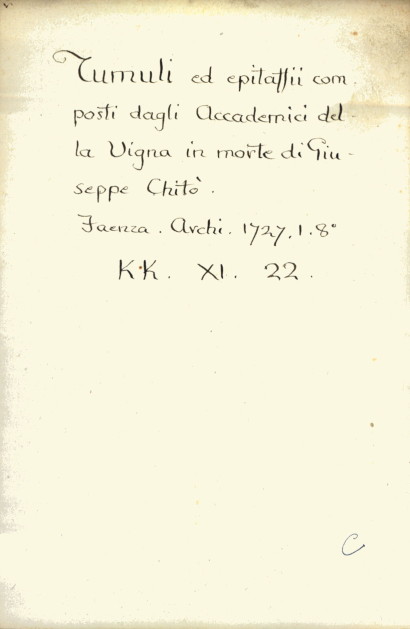 Tumuli ed epitaffii com
posti dagli Accademici del-
la Vigna in morte di Giu-
seppe Chitò.
Faenza. Archi. 1727. 1. 8°
KK. XI. 22.
C